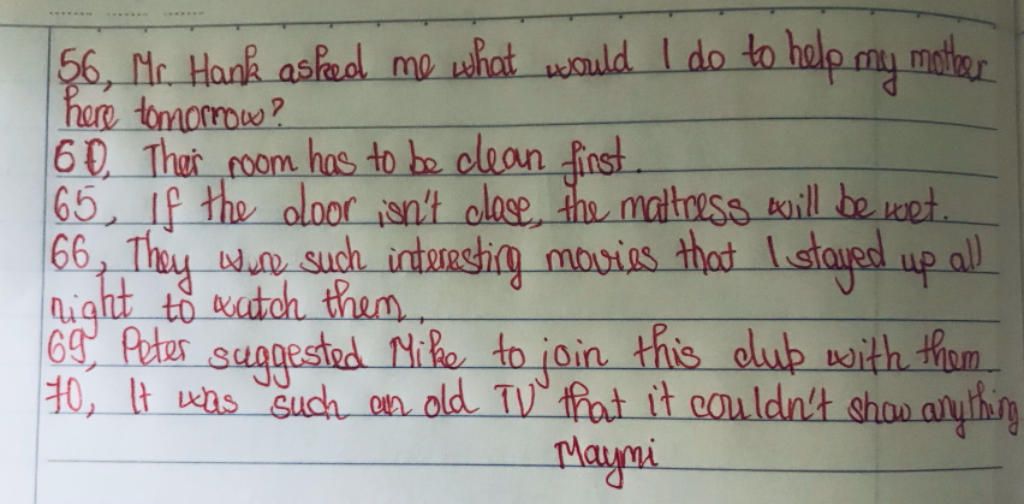 56, Mr. Hank asked me what would I do to help my mother
here tomorrow?
60, Their room has to be clean first.
65, If the door isn't close, the mattress will be wet.
66, They were such interesting movies that I stayed up all
night to watch them.
69, Peter suggested Mike to join this club with them.
70, It was such an old TV that it couldn't show anything
Maymi